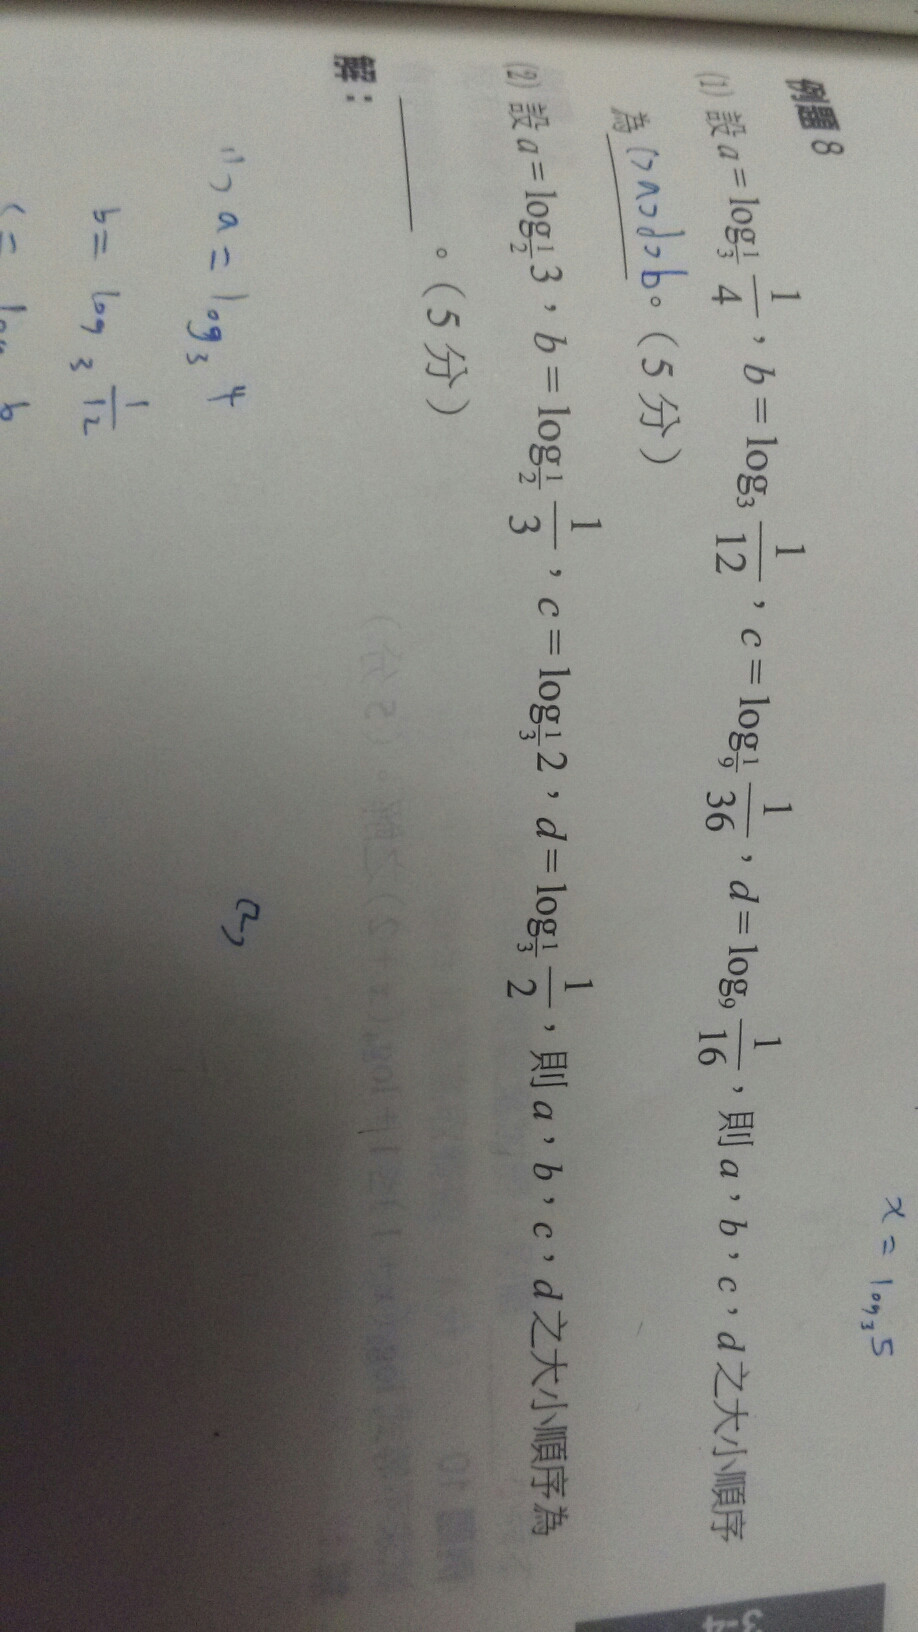 x = log₃5
例題 8
(1) 設 a = log_{1/3} 1/4,b = log₃ 1/12,c = log_{1/9} 1/36,d = log₉ 1/16,則 a,b,c,d 之大小順序
為 c>a>d>b。(5 分)
(2) 設 a = log_{1/2} 3,b = log_{1/2} 1/3,c = log_{1/3} 2,d = log_{1/3} 1/2,則 a,b,c,d 之大小順序為
。(5 分)
解:
(1) a = log₃ 4
(2)
b = log₃ 1/12
3-4